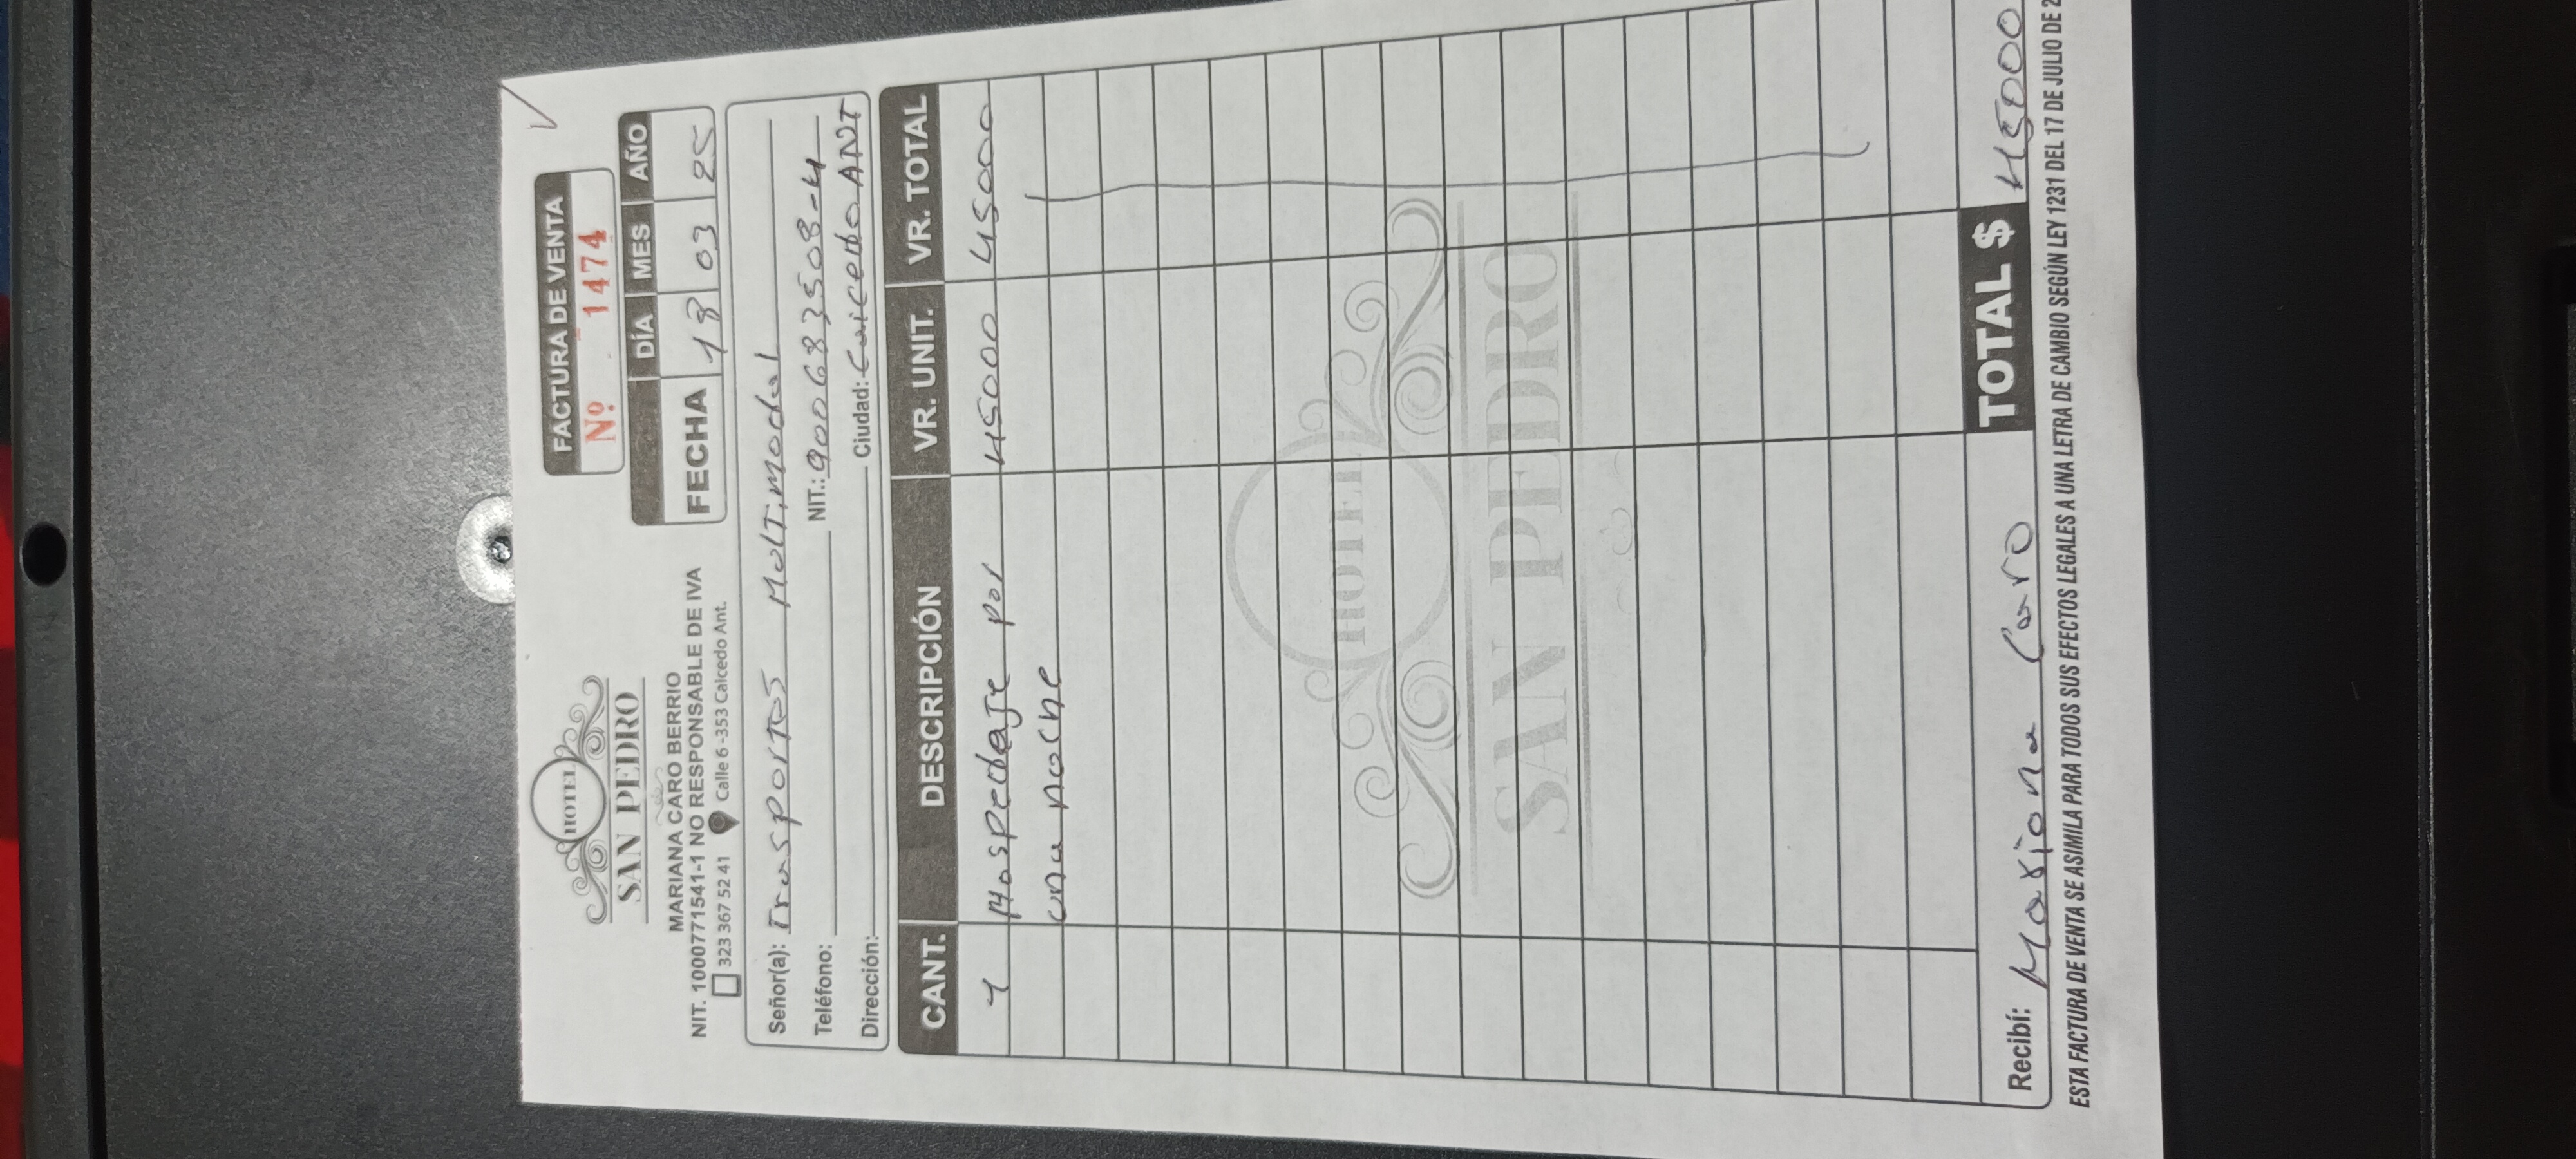 HOTEL
SAN PEDRO
MARIANA CARO BERRIO
NIT. 1000771541-1 NO RESPONSABLE DE IVA
323 367 52 41 Calle 6 -353 Caicedo Ant.
FACTURA DE VENTA
Nº 1474
DÍA MES AÑO
FECHA 18 03 25
Señor(a): Trasportes Multimodal
Teléfono: NIT.: 900683508-4
Dirección: Ciudad: Caicedo ANT
CANT. DESCRIPCIÓN VR. UNIT. VR. TOTAL
1 Hospedaje por 45000 45000
una noche
HOTEL
SAN PEDRO
Recibí: Mariana Caro TOTAL $ 45000
ESTA FACTURA DE VENTA SE ASIMILA PARA TODOS SUS EFECTOS LEGALES A UNA LETRA DE CAMBIO SEGÚN LEY 1231 DEL 17 DE JULIO DE 2